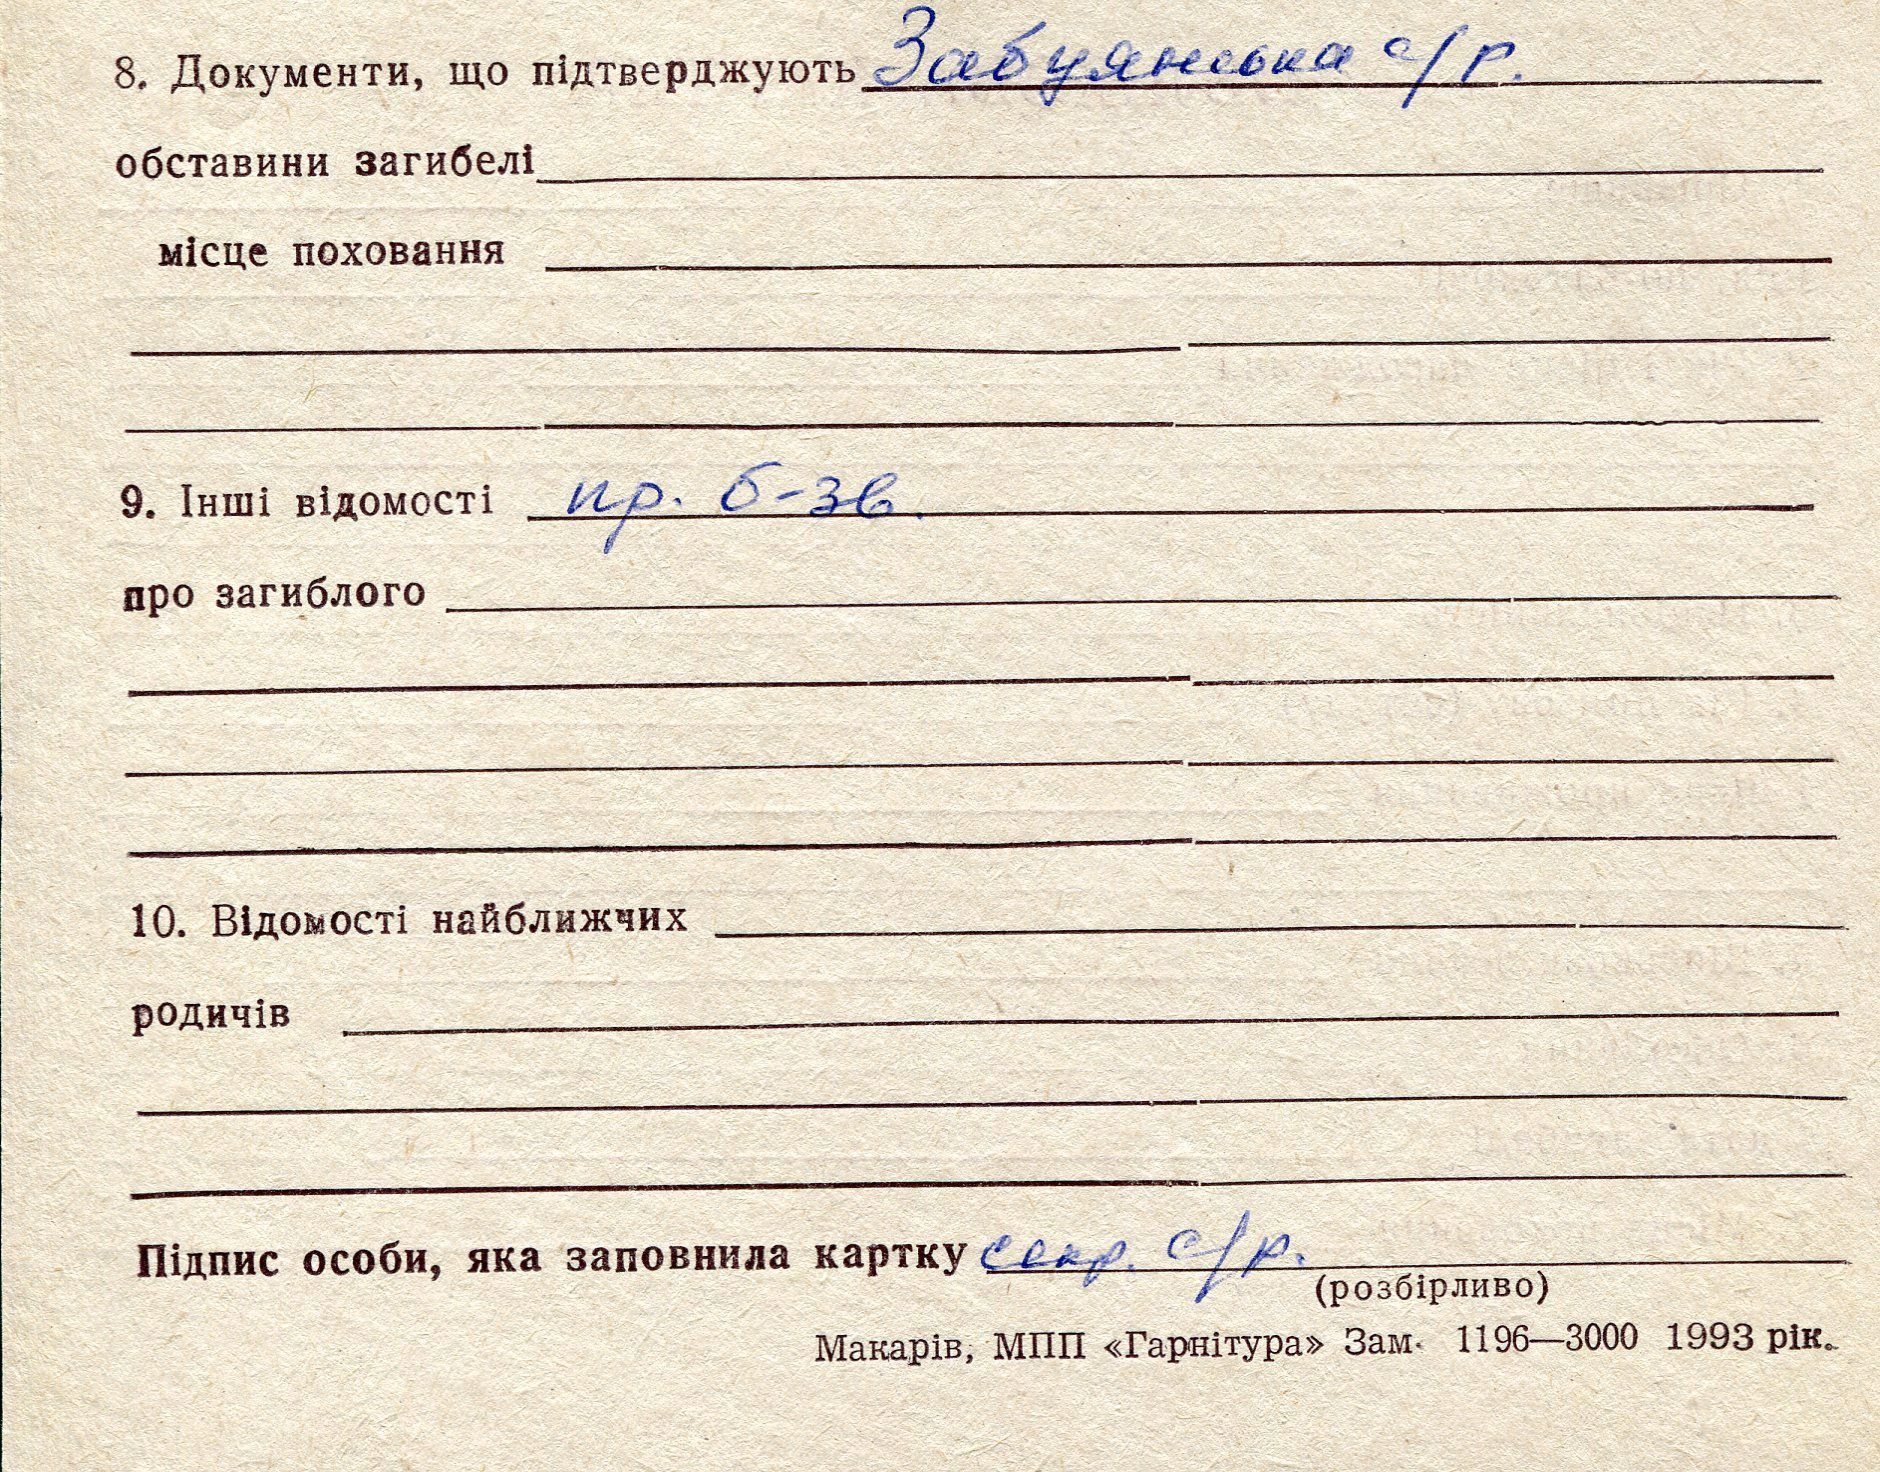 8. Документи, що підтверджують Забуянська с/р.
обставини загибелі
місце поховання
9. Інші відомості пр. б-зв.
про загиблого
10. Відомості найближчих
родичів
Підпис особи, яка заповнила картку секр. с/р.
(розбірливо)
Макарів, МПП «Гарнітура» Зам. 1196—3000 1993 рік.